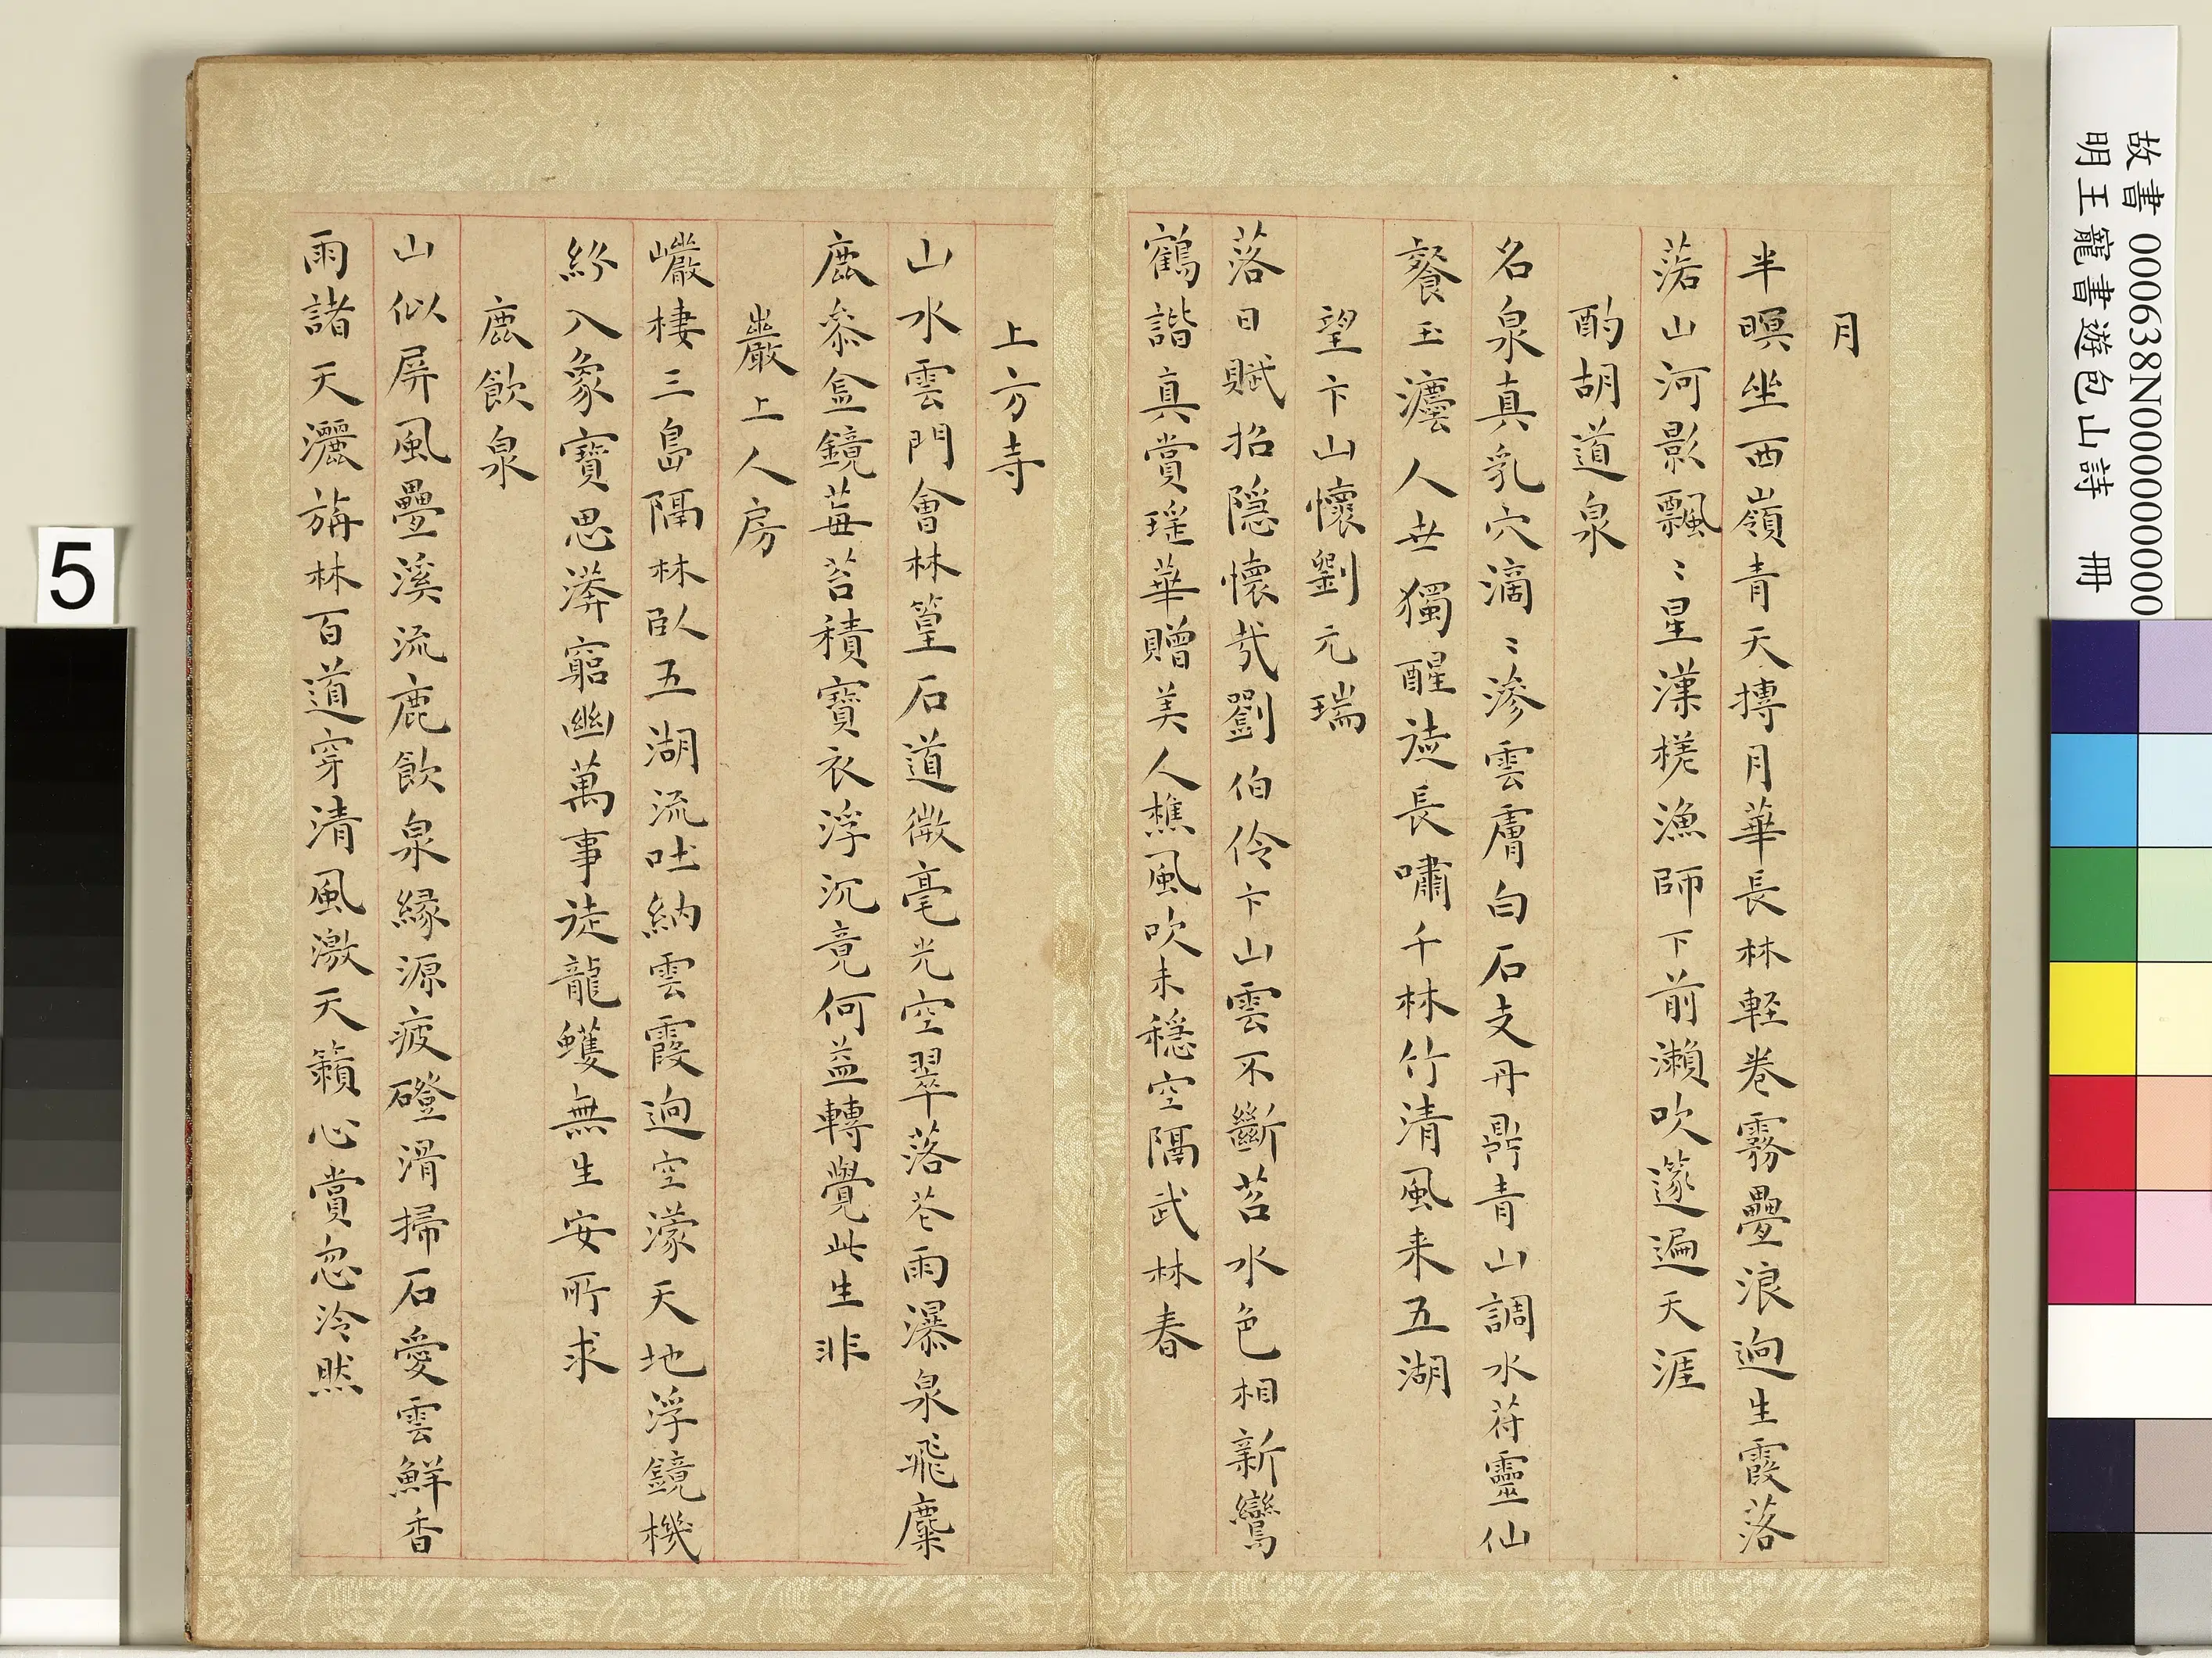 月
半暝坐西嶺青天摶月華長林軽卷霧疊浪逈生霞落
落山河影飄〻星漢槎漁師下前瀨吹篴遍天涯
酌胡道泉
名泉真乳穴滴〻滲雲膚白石支丹鼎青山調水符靈仙
餐玉瀣人世獨醒徒長嘯千林竹清風来五湖
望卞山懷劉元瑞
落日賦招隐懷哉劉伯伶卞山雲不斷苕水色相新鸞
鶴諧真賞瑶華贈美人樵風吹未穩空隔武林春
上方寺
山水雲門會林篁石道微毫光空翠落花雨瀑泉飛麋
鹿叅盒鏡莓苔積寶衣浮沉竟何益轉覺此生非
巖上人房
巖棲三島隔林臥五湖流吐納雲霞逈空濛天地浮鏡機
紛入象寶思漭窮幽萬事徒龍蠖無生安所求
鹿飲泉
山似屏風疊溪流鹿飲泉緣源疲磴滑掃石愛雲鮮香
雨諸天灑旃林百道穿清風激天籟心賞忽泠然
故書 000638N000000000
明王寵書遊包山詩 冊
5